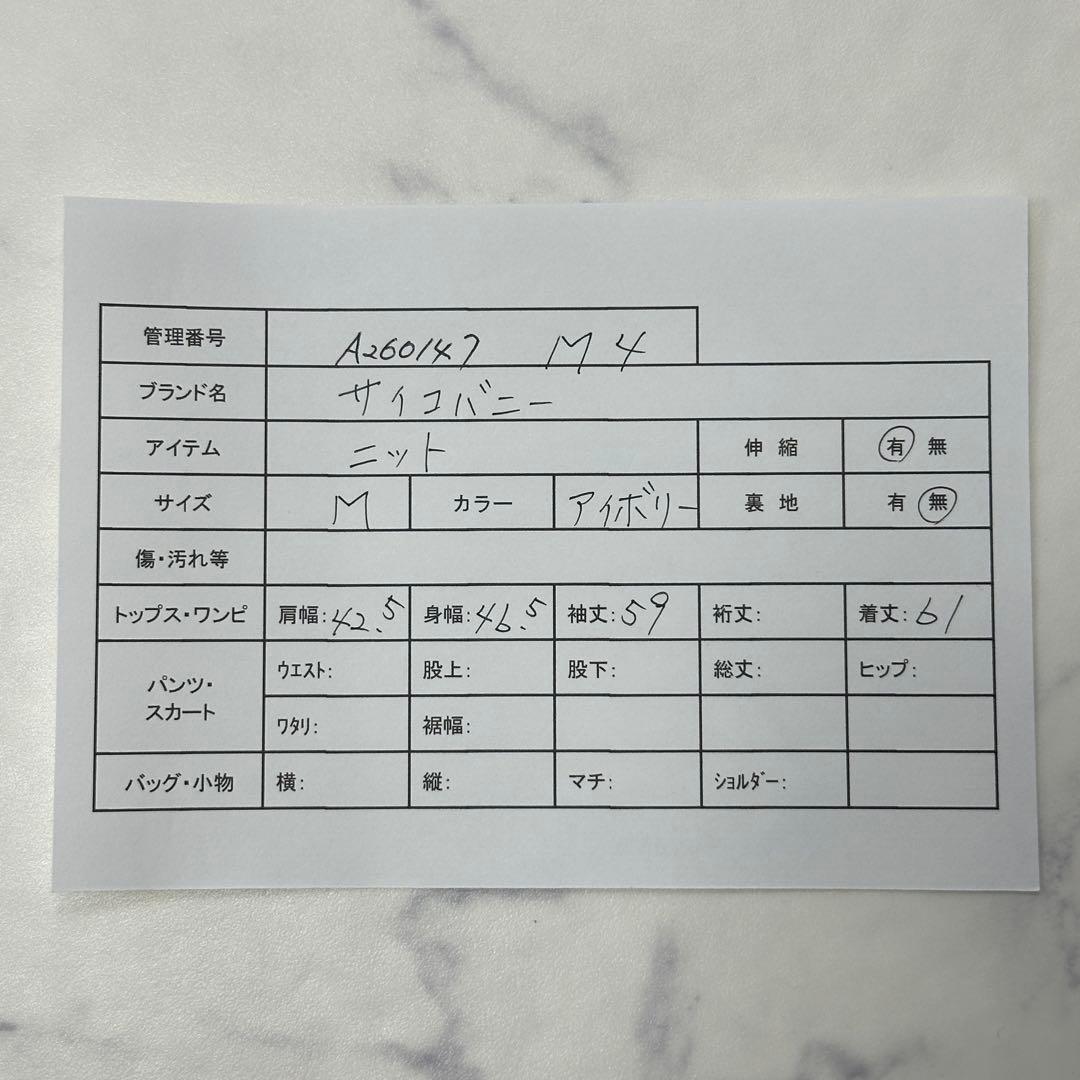 管理番号 A260147 M4
ブランド名 サイコバニー
アイテム ニット 伸縮 有 無
サイズ M カラー アイボリー 裏地 有 無
傷・汚れ等
トップス・ワンピ 肩幅:42.5 身幅:46.5 袖丈:59 裄丈: 着丈:61
パンツ・
スカート
ウエスト: 股上: 股下: 総丈: ヒップ:
ワタリ: 裾幅:
バッグ・小物 横: 縦: マチ: ショルダー: